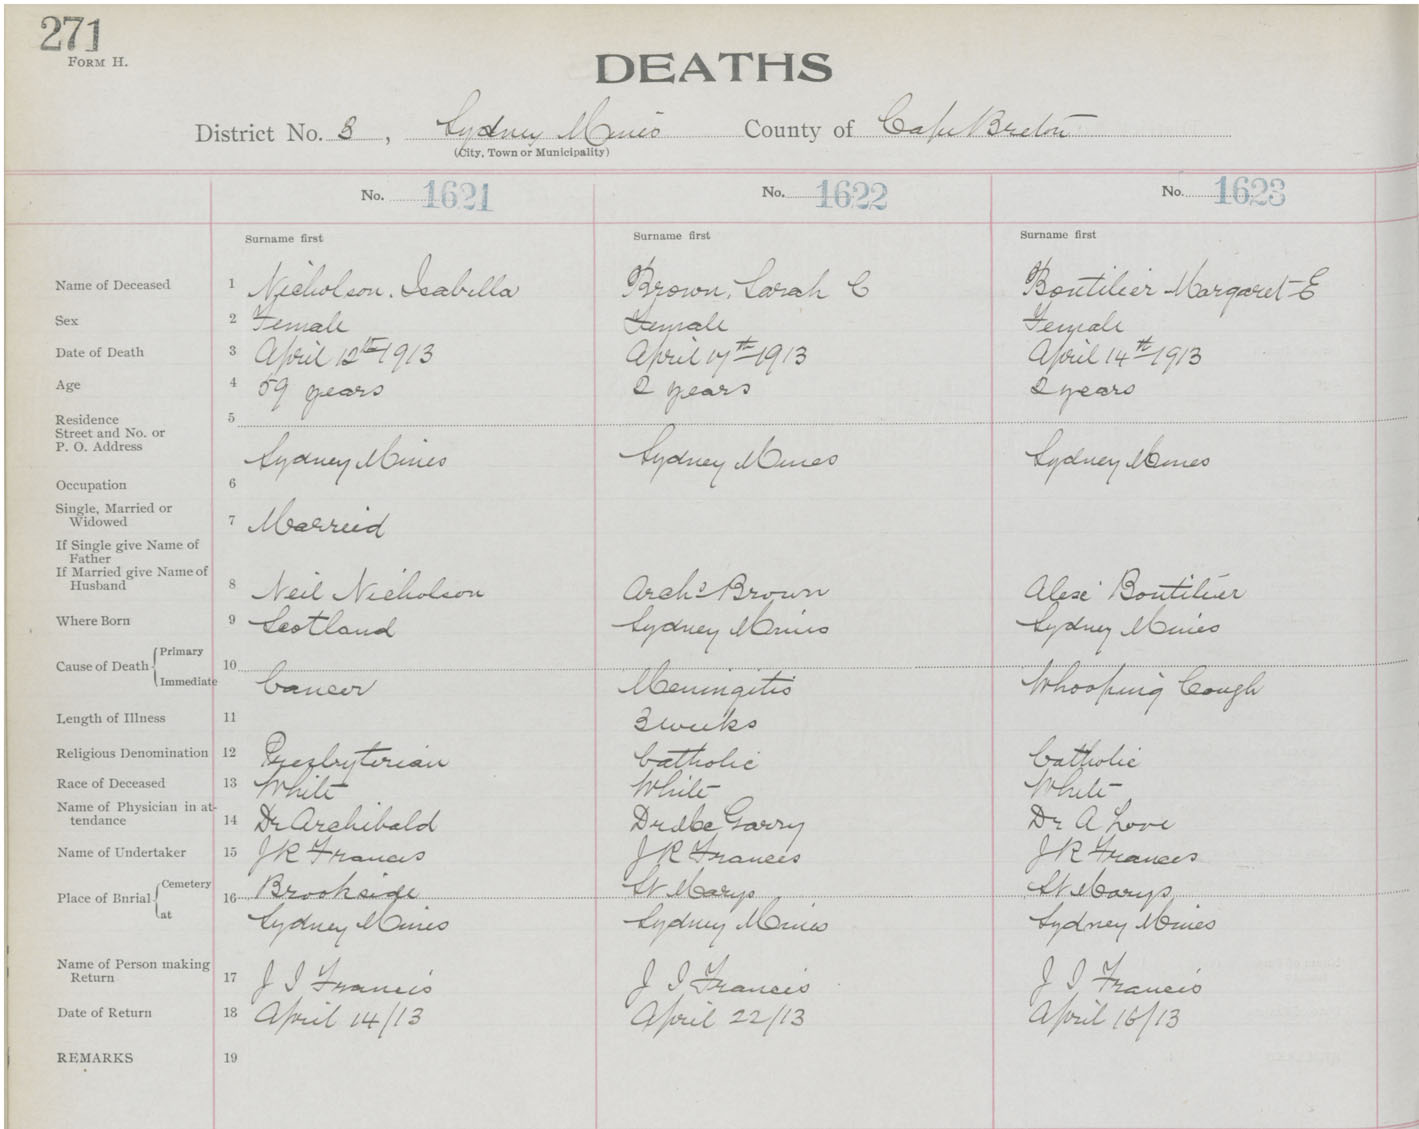 271
FORM H.
DEATHS
District No. 3, Sydney Mines County of Cape Breton
(City, Town or Municipality)
No. 1621 No. 1622 No. 1623
Surname first Surname first Surname first
Name of Deceased 1 Nicholson, Isabella Brown, Sarah C Boutilier Margaret E
Sex 2 Female Female Female
Date of Death 3 April 12th 1913 April 17th 1913 April 14th 1913
Age 4 59 years 2 years 2 years
Residence 5
Street and No. or
P. O. Address
Sydney Mines Sydney Mines Sydney Mines
Occupation 6
Single, Married or
Widowed 7 Marreid
If Single give Name of
Father
If Married give Name of
Husband 8 Neil Nicholson Archd Brown Alexr Boutilier
Where Born 9 Scotland Sydney Mines Sydney Mines
Cause of Death Primary 10
Immediate Cancer Meningitis Whooping Cough
Length of Illness 11 3 weeks
Religious Denomination 12 Presbyterian Catholic Catholic
Race of Deceased 13 White White White
Name of Physician in at-
tendance 14 Dr Archibald Dr Mc Garry Dr A Love
Name of Undertaker 15 J R Francis J R Francis J R Francis
Place of Bnrial Cemetery 16 Brookside St Marys St Marys
at Sydney Mines Sydney Mines Sydney Mines
Name of Person making
Return 17 J I Francis J I Francis J I Francis
Date of Return 18 April 14/13 April 22/13 April 16/13
REMARKS 19